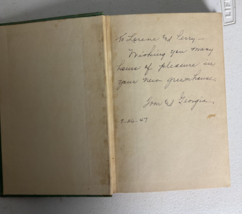 To Lorene & Perry —
Wishing you many
hours of pleasure in
your new greenhouse.
Tom & Georgia